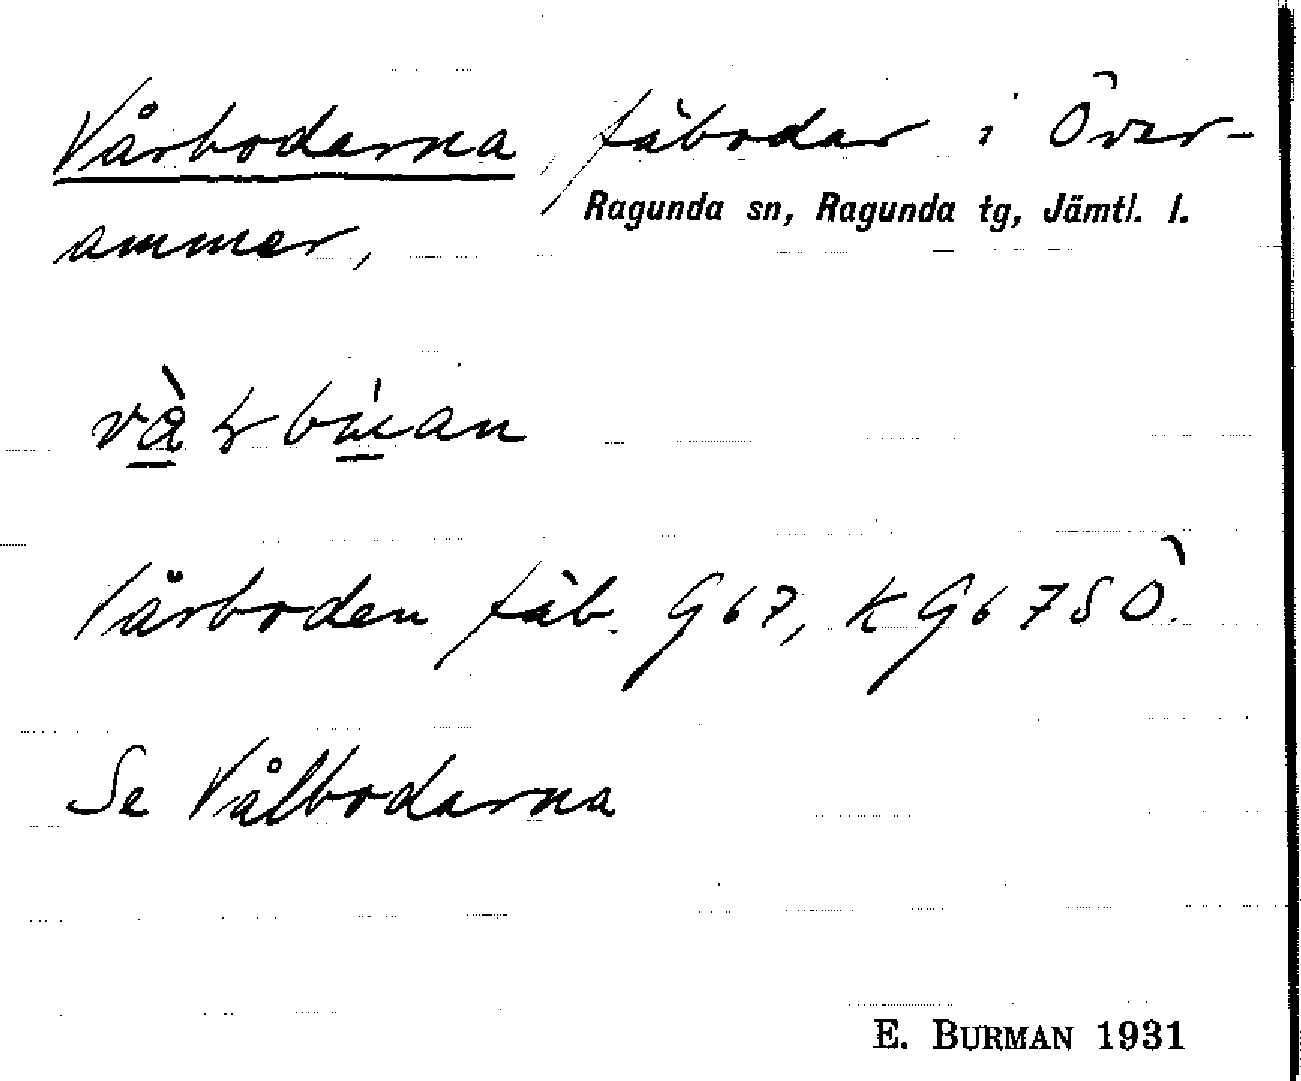 Vårbodarna, fäbodar i Över-
Ragunda sn, Ragunda tg, Jämtl. l.
ammer,
Vårboden fäb. G67, KG67SÖ.
Se Vålbodarna
E. BURMAN 1931